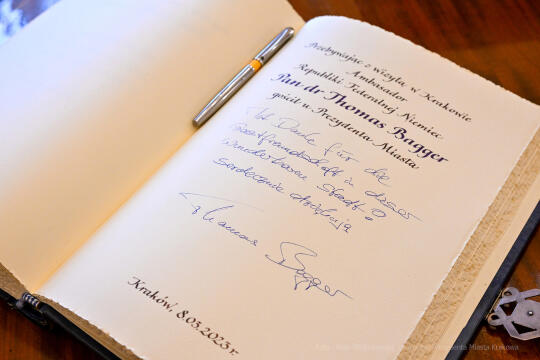 Przebywając z wizytą w Krakowie
Ambasador
Republiki Federalnej Niemiec
Pan dr Thomas Bagger
gościł u Prezydenta Miasta
Vielen Dank für die
Gastfreundschaft in dieser
wunderbaren Stadt –
serdecznie dziękuję
Thomas Bagger
Kraków, 8.03.2023 r.